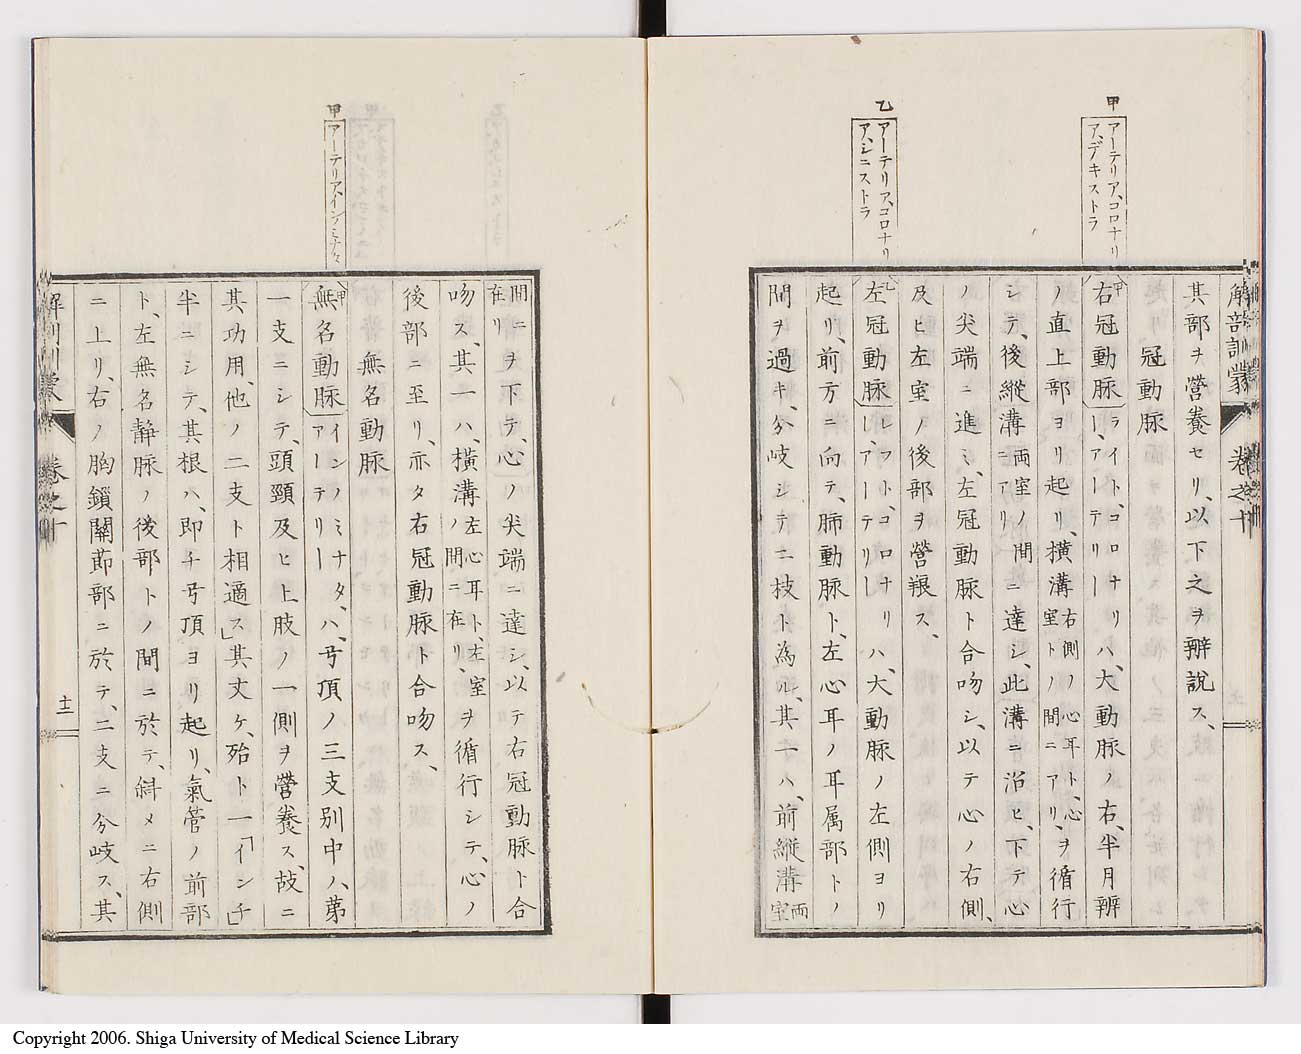 解剖訓蒙 卷之十
甲
アーテリア、コロナリ
ア、デキストラ
乙
アーテリア、コロナリ
ア、シニストラ
其部ヲ營養セリ、以下之ヲ辨説ス、
冠動脈
甲右冠動脈ライト、コロナリ
ー、アーテリーハ、大動脈ノ右、半月辨
ノ直上部ヨリ起リ、橫溝右側ノ心耳ト心
室トノ間ニアリ、ヲ循行
シテ、後縱溝兩室ノ間
ニアリニ達シ、此溝ニ沿ヒ、下テ心
ノ尖端ニ進ミ、左冠動脈ト合吻シ、以テ心ノ右側、
及ヒ左室ノ後部ヲ營養ス、
乙左冠動脈レフト、コロナリ
ー、アーテリーハ、大動脈ノ左側ヨリ
起リ、前方ニ向テ、肺動脈ト、左心耳ノ耳属部トノ
間ヲ過キ、分岐シテ二枝ト為ル、其一ハ、前縱溝兩
室
甲
アーテリア、インノミナタ
間ニ
在リヲ下テ、心ノ尖端ニ達シ、以テ右冠動脈ト合
吻ス、其一ハ、橫溝左心耳ト、左室
ノ間ニ在リ、ヲ循行シテ、心ノ
後部ニ至リ、亦タ右冠動脈ト合吻ス、
無名動脈
甲無名動脈インノミナタ、
アーテリーハ、弓頂ノ三支別中ノ、第
一支ニシテ、頭頸及ヒ上肢ノ一側ヲ營養ス、故ニ
其功用、他ノ二支ト相適ス」其丈ケ、殆ト一「インチ」
半ニシテ、其根ハ、即チ弓頂ヨリ起リ、氣管ノ前部
ト、左無名靜脈ノ後部トノ間ニ於テ、斜メニ右側
ニ上リ、右ノ胸鎖關節部ニ於テ、二支ニ分岐ス、其
解剖訓蒙 卷之十 十二